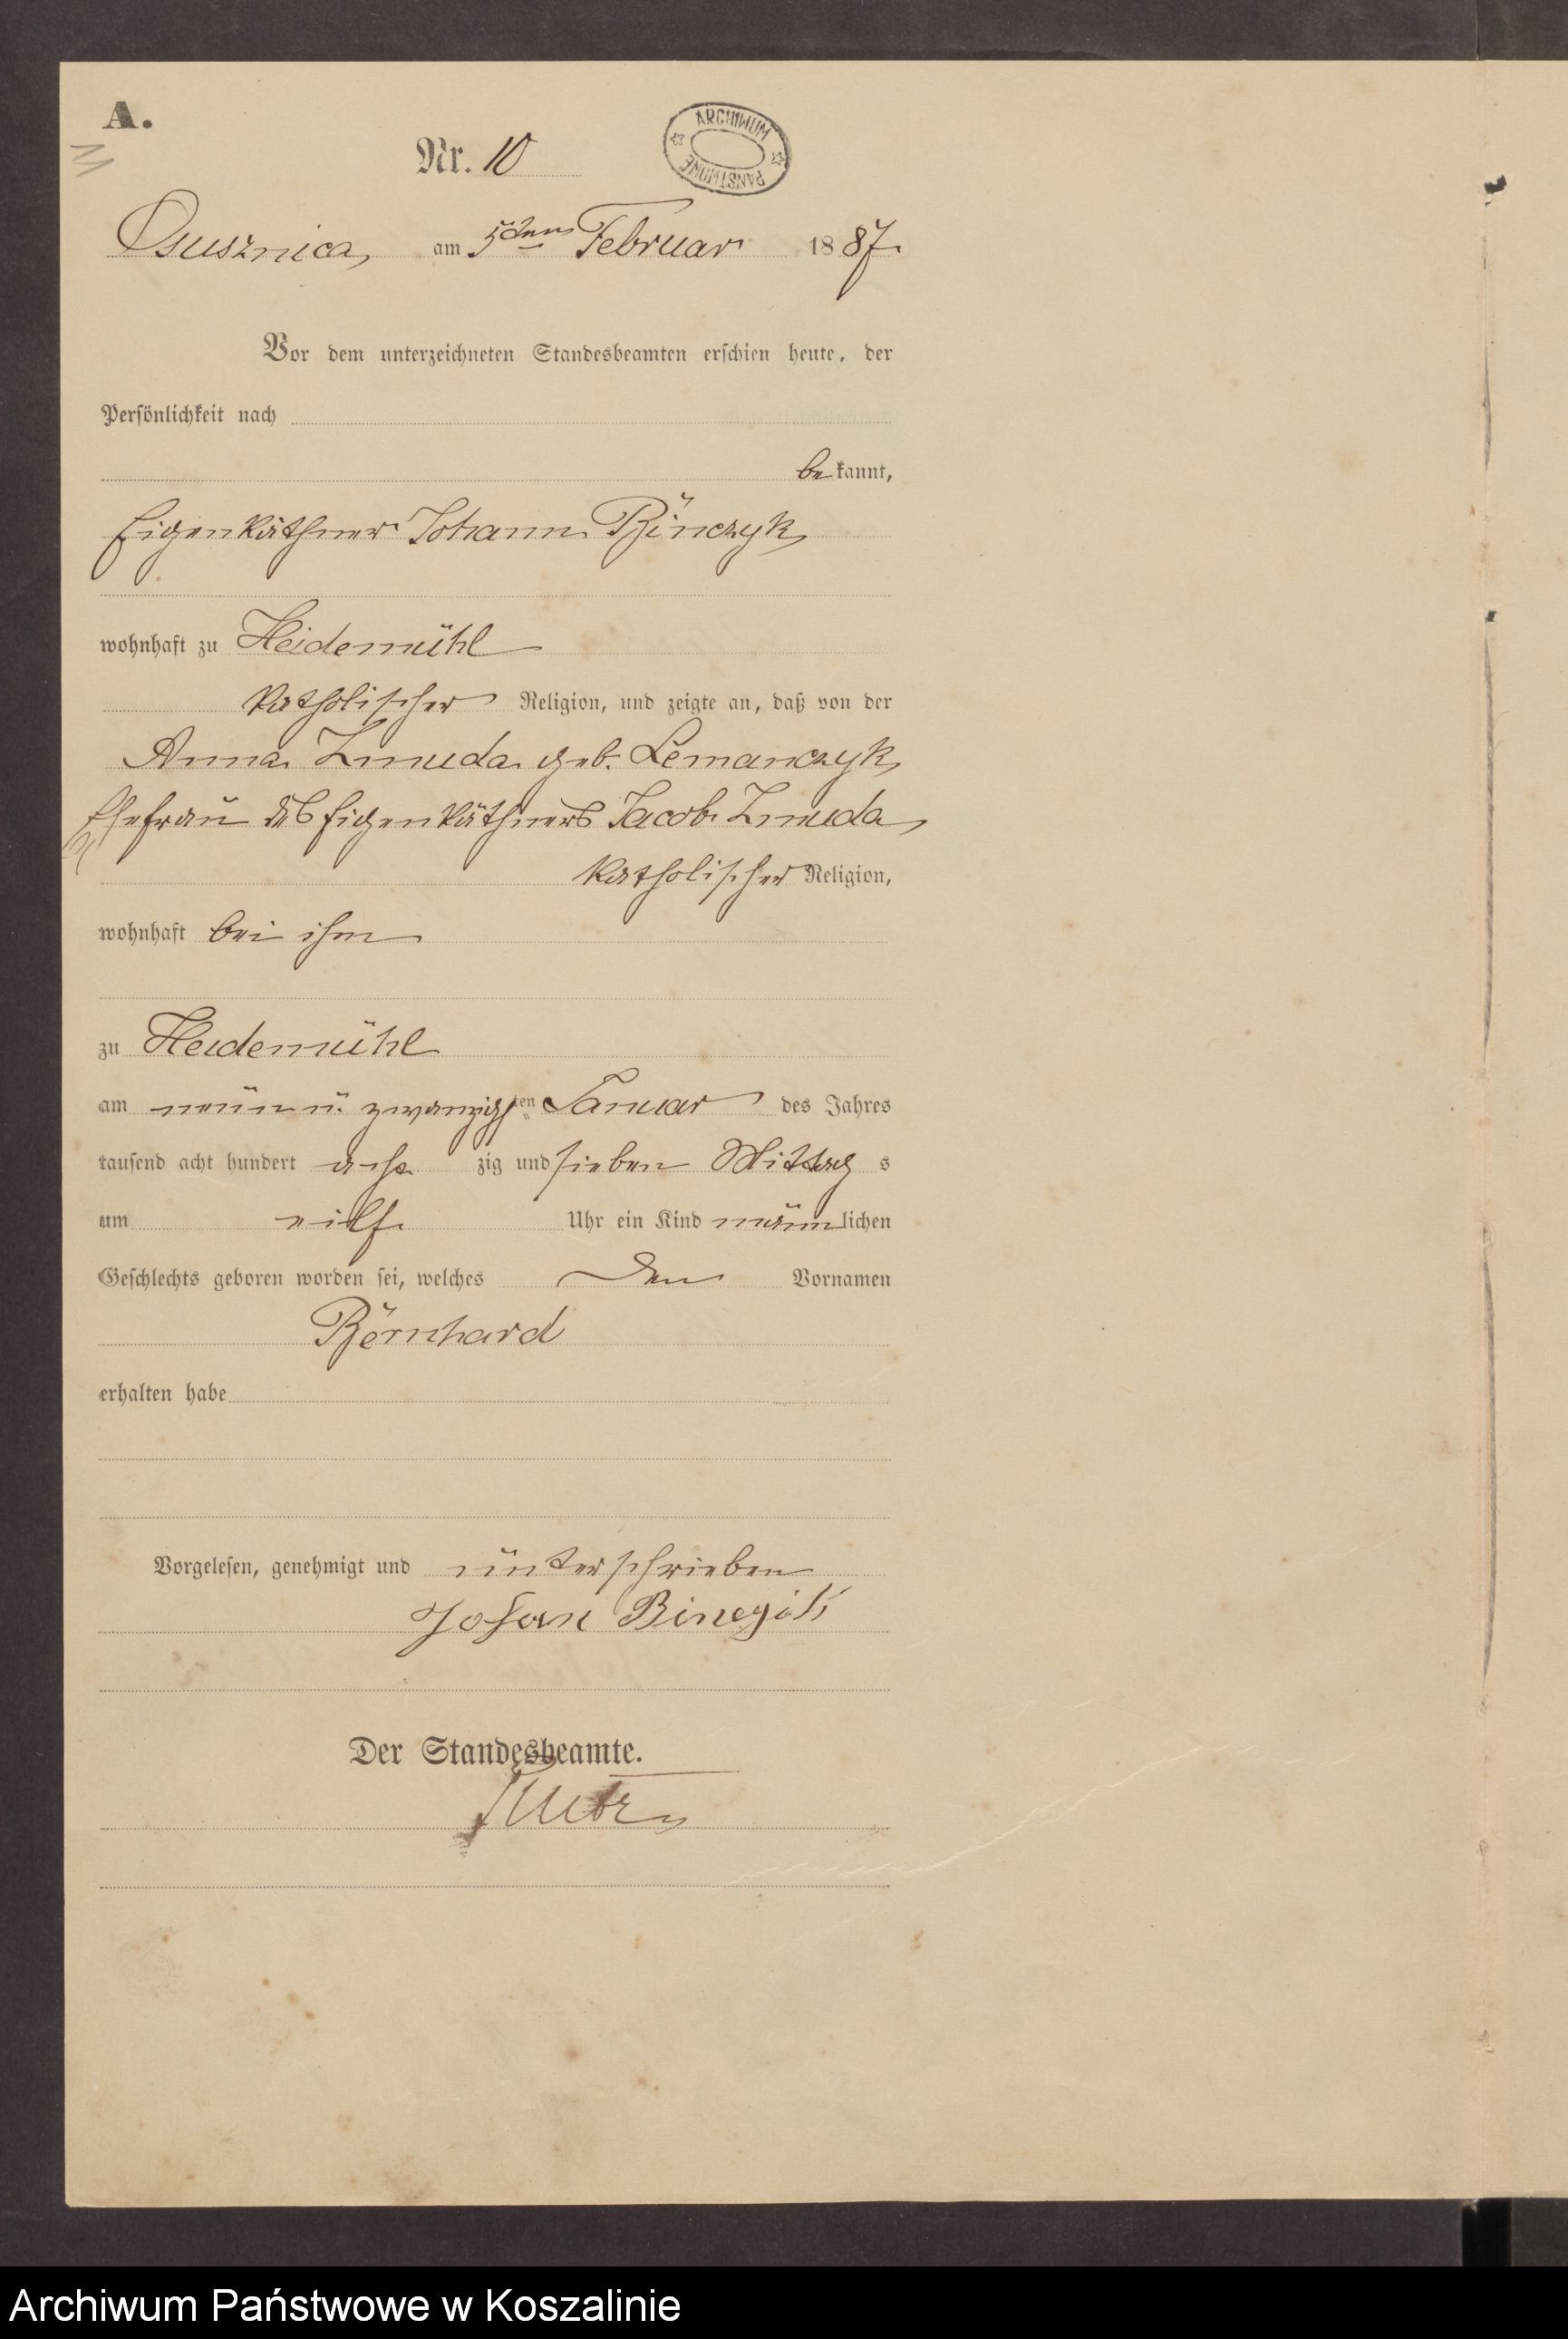 A.
Nr. 10
ARCHIWUM PAŃSTWOWE
Osusznica, am 5ten Februar 1887.
Vor dem unterzeichneten Standesbeamten erschien heute, der
Persönlichkeit nach
bekannt,
Eigenkäthner Johann Binczyk,
wohnhaft zu Heidemühl
katholischer Religion, und zeigte an, daß von der
Anna Zmuda geb. Lemanczyk,
Ehefrau des Eigenkäthners Jacob Zmuda,
katholischer Religion,
wohnhaft bei ihm
zu Heidemühl
am neun u. zwanzigsten Januar des Jahres
tausend acht hundert acht zig und sieben Mittag s
um eilf Uhr ein Kind männlichen
Geschlechts geboren worden sei, welches den Vornamen
Bernhard
erhalten habe
Vorgelesen, genehmigt und unterschrieben
Johan
Der Standesbeamte.
Archiwum Państwowe w Koszalinie